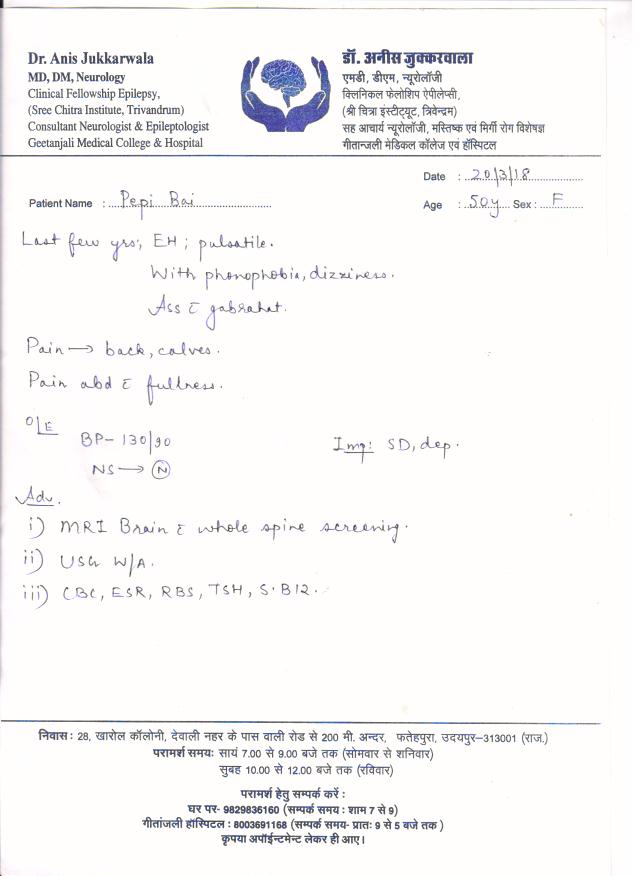 Dr. Anis Jukkarwala
MD, DM, Neurology
Clinical Fellowship Epilepsy,
(Sree Chitra Institute, Trivandrum)
Consultant Neurologist & Epileptologist
Geetanjali Medical College & Hospital
डॉ. अनीस जुक्करवाला
एमडी, डीएम, न्यूरोलॉजी
क्लिनिकल फेलोशिप ऐपीलेप्सी,
(श्री चित्रा इंस्टीट्यूट, त्रिवेन्द्रम)
सह आचार्य न्यूरोलॉजी, मस्तिष्क एवं मिर्गी रोग विशेषज्ञ
गीतान्जली मेडिकल कॉलेज एवं हॉस्पिटल
Date : 20/3/18
Patient Name : Pepi Bai
Age : 50y Sex : F
Last few yrs; EH; pulsatile.
With phonophobia, dizziness.
Ass c̄ gabrahat.
Pain → back, calves.
Pain abd c̄ fullness.
O/E
BP- 130/90
Imp: SD, dep.
NS → N
Adv.
i) MRI Brain c̄ whole spine screening.
ii) USG W/A.
iii) CBC, ESR, RBS, TSH, S.B12.
निवास : 28, खारोल कॉलोनी, देवाली नहर के पास वाली रोड से 200 मी. अन्दर, फतेहपुरा, उदयपुर–313001 (राज.)
परामर्श समयः सायं 7.00 से 9.00 बजे तक (सोमवार से शनिवार)
सुबह 10.00 से 12.00 बजे तक (रविवार)
परामर्श हेतु सम्पर्क करें :
घर पर- 9829836160 (सम्पर्क समय : शाम 7 से 9)
गीतांजली हॉस्पिटल : 8003691168 (सम्पर्क समय- प्रातः 9 से 5 बजे तक )
कृपया अपॉईन्टमेन्ट लेकर ही आए।